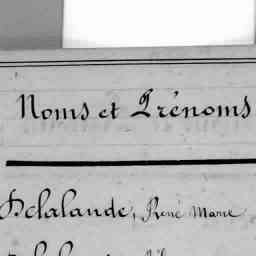 Noms et Prénoms
Delalande, René Marie